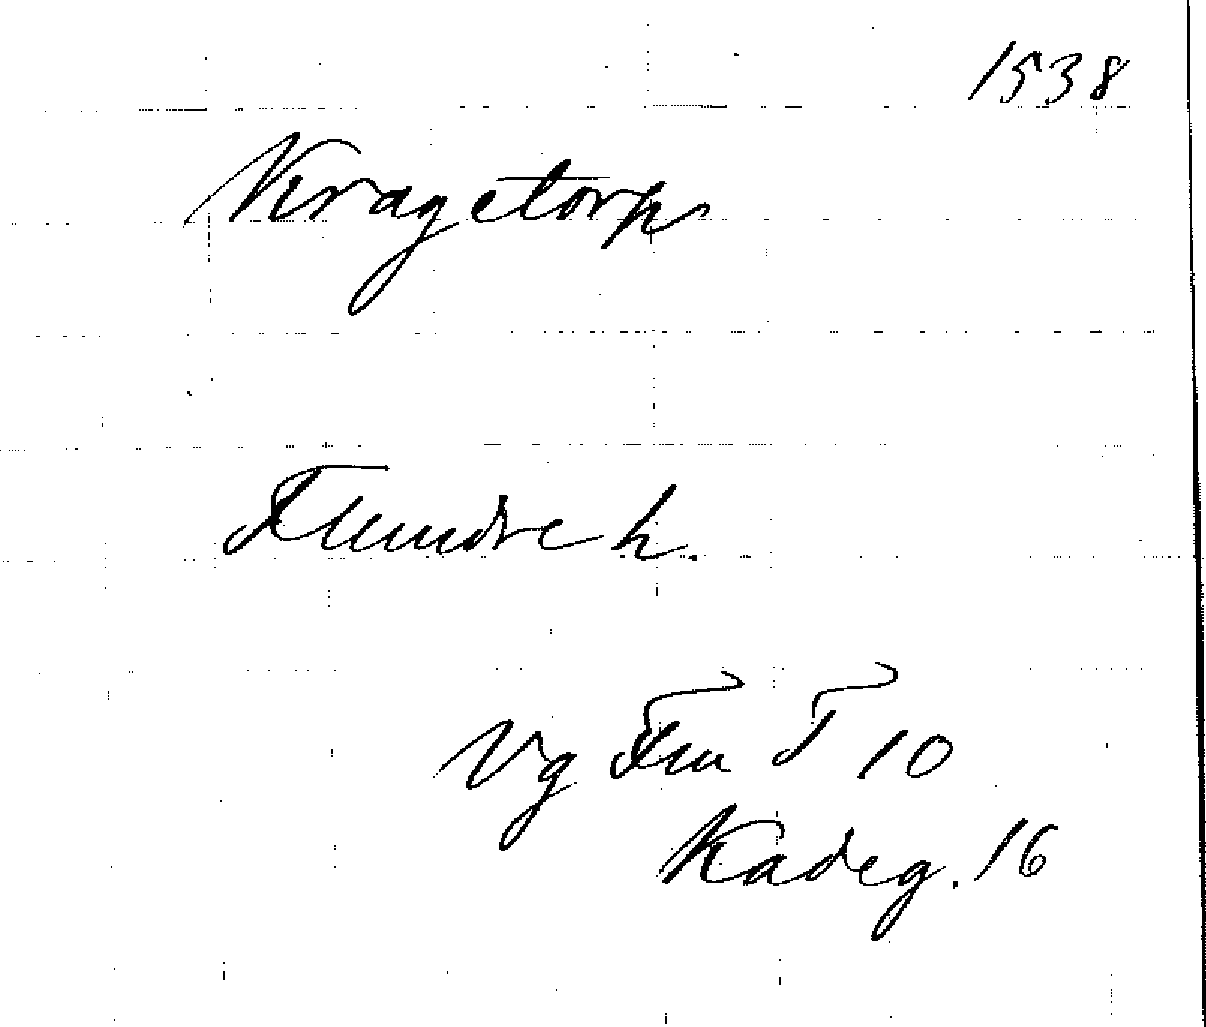 1538
Kragetorp
Flundre h.
Vg T 10
Kadeg. 16